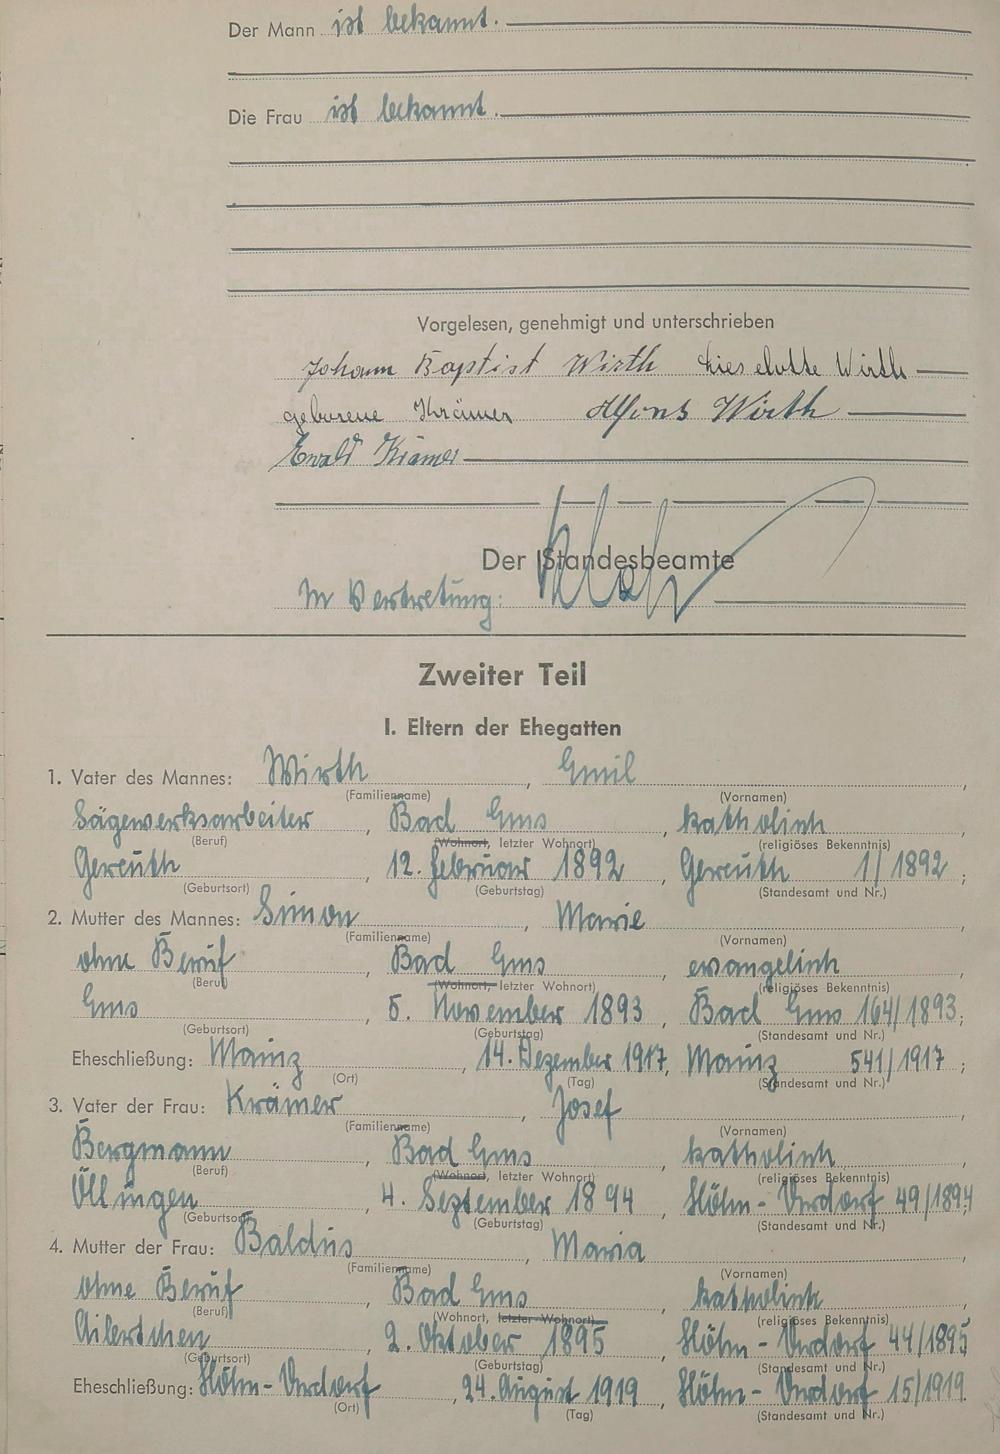 Der Mann ist bekannt.
Die Frau ist bekannt.
Vorgelesen, genehmigt und unterschrieben
Johann Baptist Wirth Lieselotte Wirth
geborene Krämer Alfons Wirth
Ewald Krämer
Der Standesbeamte
In Vertretung:
Zweiter Teil
I. Eltern der Ehegatten
1. Vater des Mannes: Wirth, Emil,
(Familienname) (Vornamen)
Sägewerksarbeiter, Bad Ems, katholisch,
(Beruf) (Wohnort, letzter Wohnort) (religiöses Bekenntnis)
Gereuth, 12. Februar 1892, Gereuth 1/1892;
(Geburtsort) (Geburtstag) (Standesamt und Nr.)
2. Mutter des Mannes: Simon, Marie,
(Familienname) (Vornamen)
ohne Beruf, Bad Ems, evangelisch,
(Beruf) (Wohnort, letzter Wohnort) (religiöses Bekenntnis)
Ems, 5. November 1893, Bad Ems 164/1893;
(Geburtsort) (Geburtstag) (Standesamt und Nr.)
Eheschließung: Mainz, 14. Dezember 1917, Mainz 541/1917;
(Ort) (Tag) (Standesamt und Nr.)
3. Vater der Frau: Krämer, Josef,
(Familienname) (Vornamen)
Bergmann, Bad Ems, katholisch,
(Beruf) (Wohnort, letzter Wohnort) (religiöses Bekenntnis)
Öllingen, 4. September 1894, Höhn-Urdorf 49/1894;
(Geburtsort) (Geburtstag) (Standesamt und Nr.)
4. Mutter der Frau: Baldus, Maria,
(Familienname) (Vornamen)
ohne Beruf, Bad Ems, katholisch,
(Beruf) (Wohnort, letzter Wohnort) (religiöses Bekenntnis)
Ailertchen, 2. Oktober 1895, Höhn-Urdorf 44/1895
(Geburtsort) (Geburtstag) (Standesamt und Nr.)
Eheschließung: Höhn-Urdorf, 24. August 1919, Höhn-Urdorf 15/1919.
(Ort) (Tag) (Standesamt und Nr.)